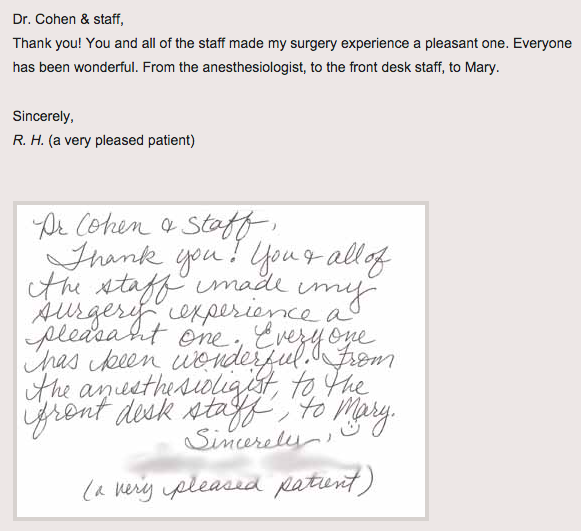 Dr. Cohen & staff,
Thank you! You and all of the staff made my surgery experience a pleasant one. Everyone
has been wonderful. From the anesthesiologist, to the front desk staff, to Mary.
Sincerely,
R. H. (a very pleased patient)
Dr Cohen & Staff,
Thank you! You & all of
the staff made my
surgery experience a
pleasant one. Everyone
has been wonderful. From
the aniesthesioligist, to the
front desk staff, to Mary.
Sincerely,
(a very pleased patient)